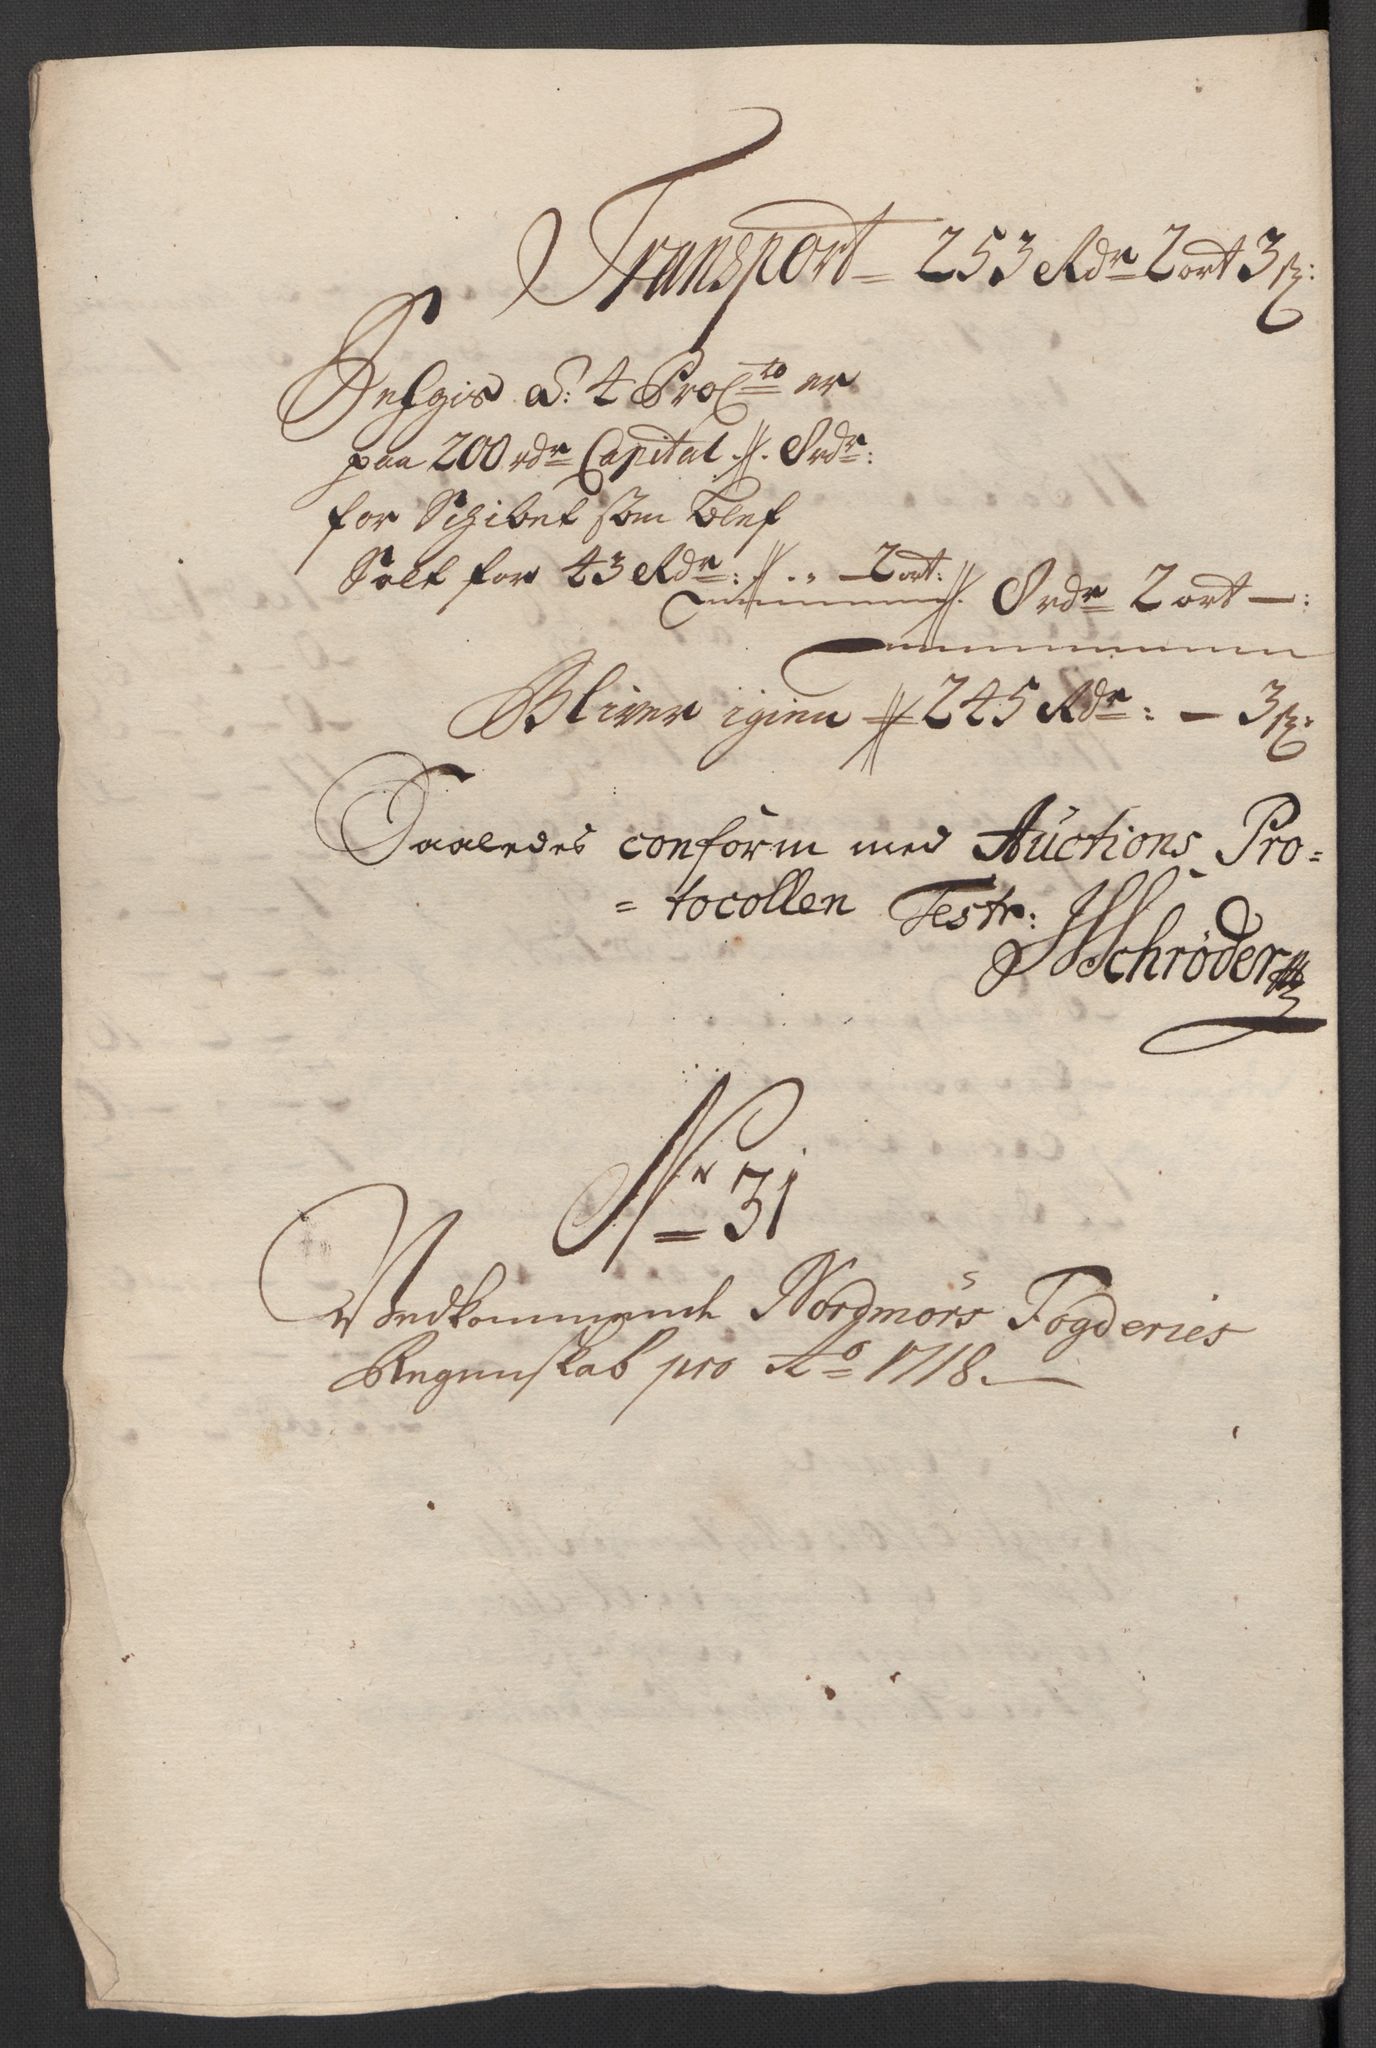 Transport = 253 Rdr 2 ort 3 ß:
Aufgis a: 4 ProCto er
paa 200 rdr Capital .//. 8 rdr:
for Schibet som blef
Solt for 43 Rdr: // .. — 2 ort: // 8 rdr 2 ort —:
Bliver igien // 245 Rdr: — 3 ß:
Saaledes conform med Auctions Pro=
=tocollen Testr: Schrøder
Nr 31
Vedkommende Nordmørs Fogderies
Regenskab pro Ao 1718.—